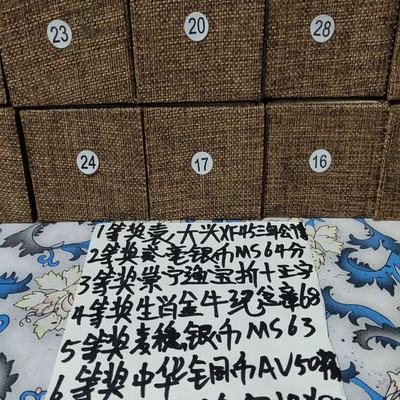 23 20 28
24 17 16
1等奖 大兴XF45三年
2等奖 银币MS64分
3等奖崇宁通宝折十
4等奖生肖金牛纪念章68
5等奖麦穗银币MS63
6等奖中华铜币AV50